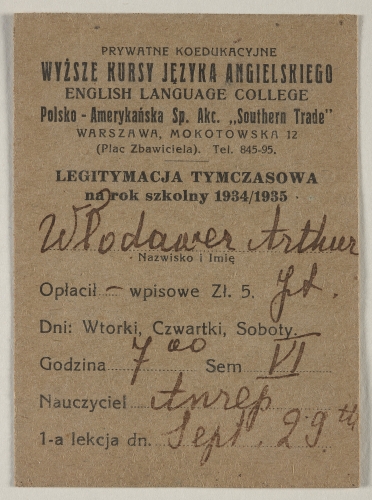 PRYWATNE KOEDUKACYJNE
WYŻSZE KURSY JĘZYKA ANGIELSKIEGO
ENGLISH LANGUAGE COLLEGE
Polsko - Amerykańska Sp. Akc. „Southern Trade"
WARSZAWA, MOKOTOWSKA 12
(Plac Zbawiciela). Tel. 845-95.
LEGITYMACJA TYMCZASOWA
na rok szkolny 1934/1935
Włodawer Arthur
Nazwisko i Imię
Opłacił – wpisowe Zł. 5.
Dni: Wtorki, Czwartki, Soboty.
Godzina 7 00 Sem VI
Nauczyciel Anrep
1-a lekcja dn. Sept. 29th